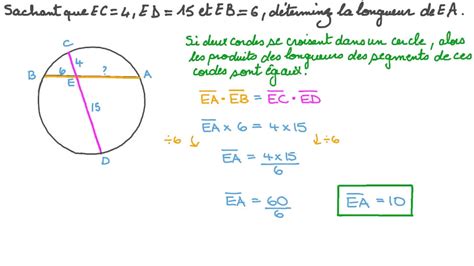 Sachant que EC = 4, ED = 15 et EB = 6, détermine la longueur de EA.
Si deux cordes se croisent dans un cercle, alors
les produits des longueurs des segments de ces
cordes sont égaux.
C
B 6 4 ? A
E
15
D
EA · EB = EC · ED
EA × 6 = 4 × 15
÷6 ÷6
EA = 4 × 15 / 6
EA = 60 / 6
EA = 10